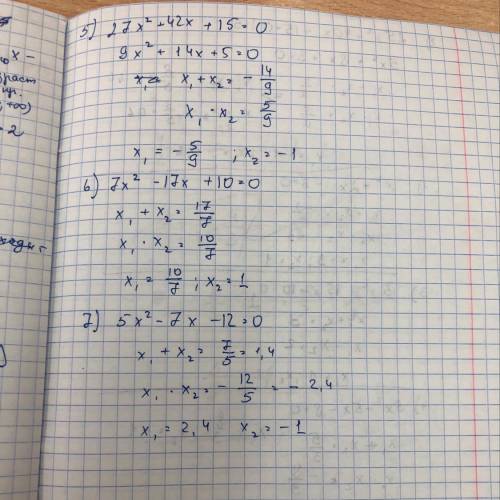 5) 27x² + 42x + 15 = 0
9x² + 14x + 5 = 0
x₁ + x₂ = - 14/9
x₁ · x₂ = 5/9
x₁ = - 5/9 ; x₂ = - 1
6) 7x² - 17x + 10 = 0
x₁ + x₂ = 17/7
x₁ · x₂ = 10/7
x₁ = 10/7 ; x₂ = 1
7) 5x² - 7x - 12 = 0
x₁ + x₂ = 7/5 = 1,4
x₁ · x₂ = - 12/5 = - 2,4
x₁ = 2,4 x₂ = - 1
x -
раст
+∞)
- 2